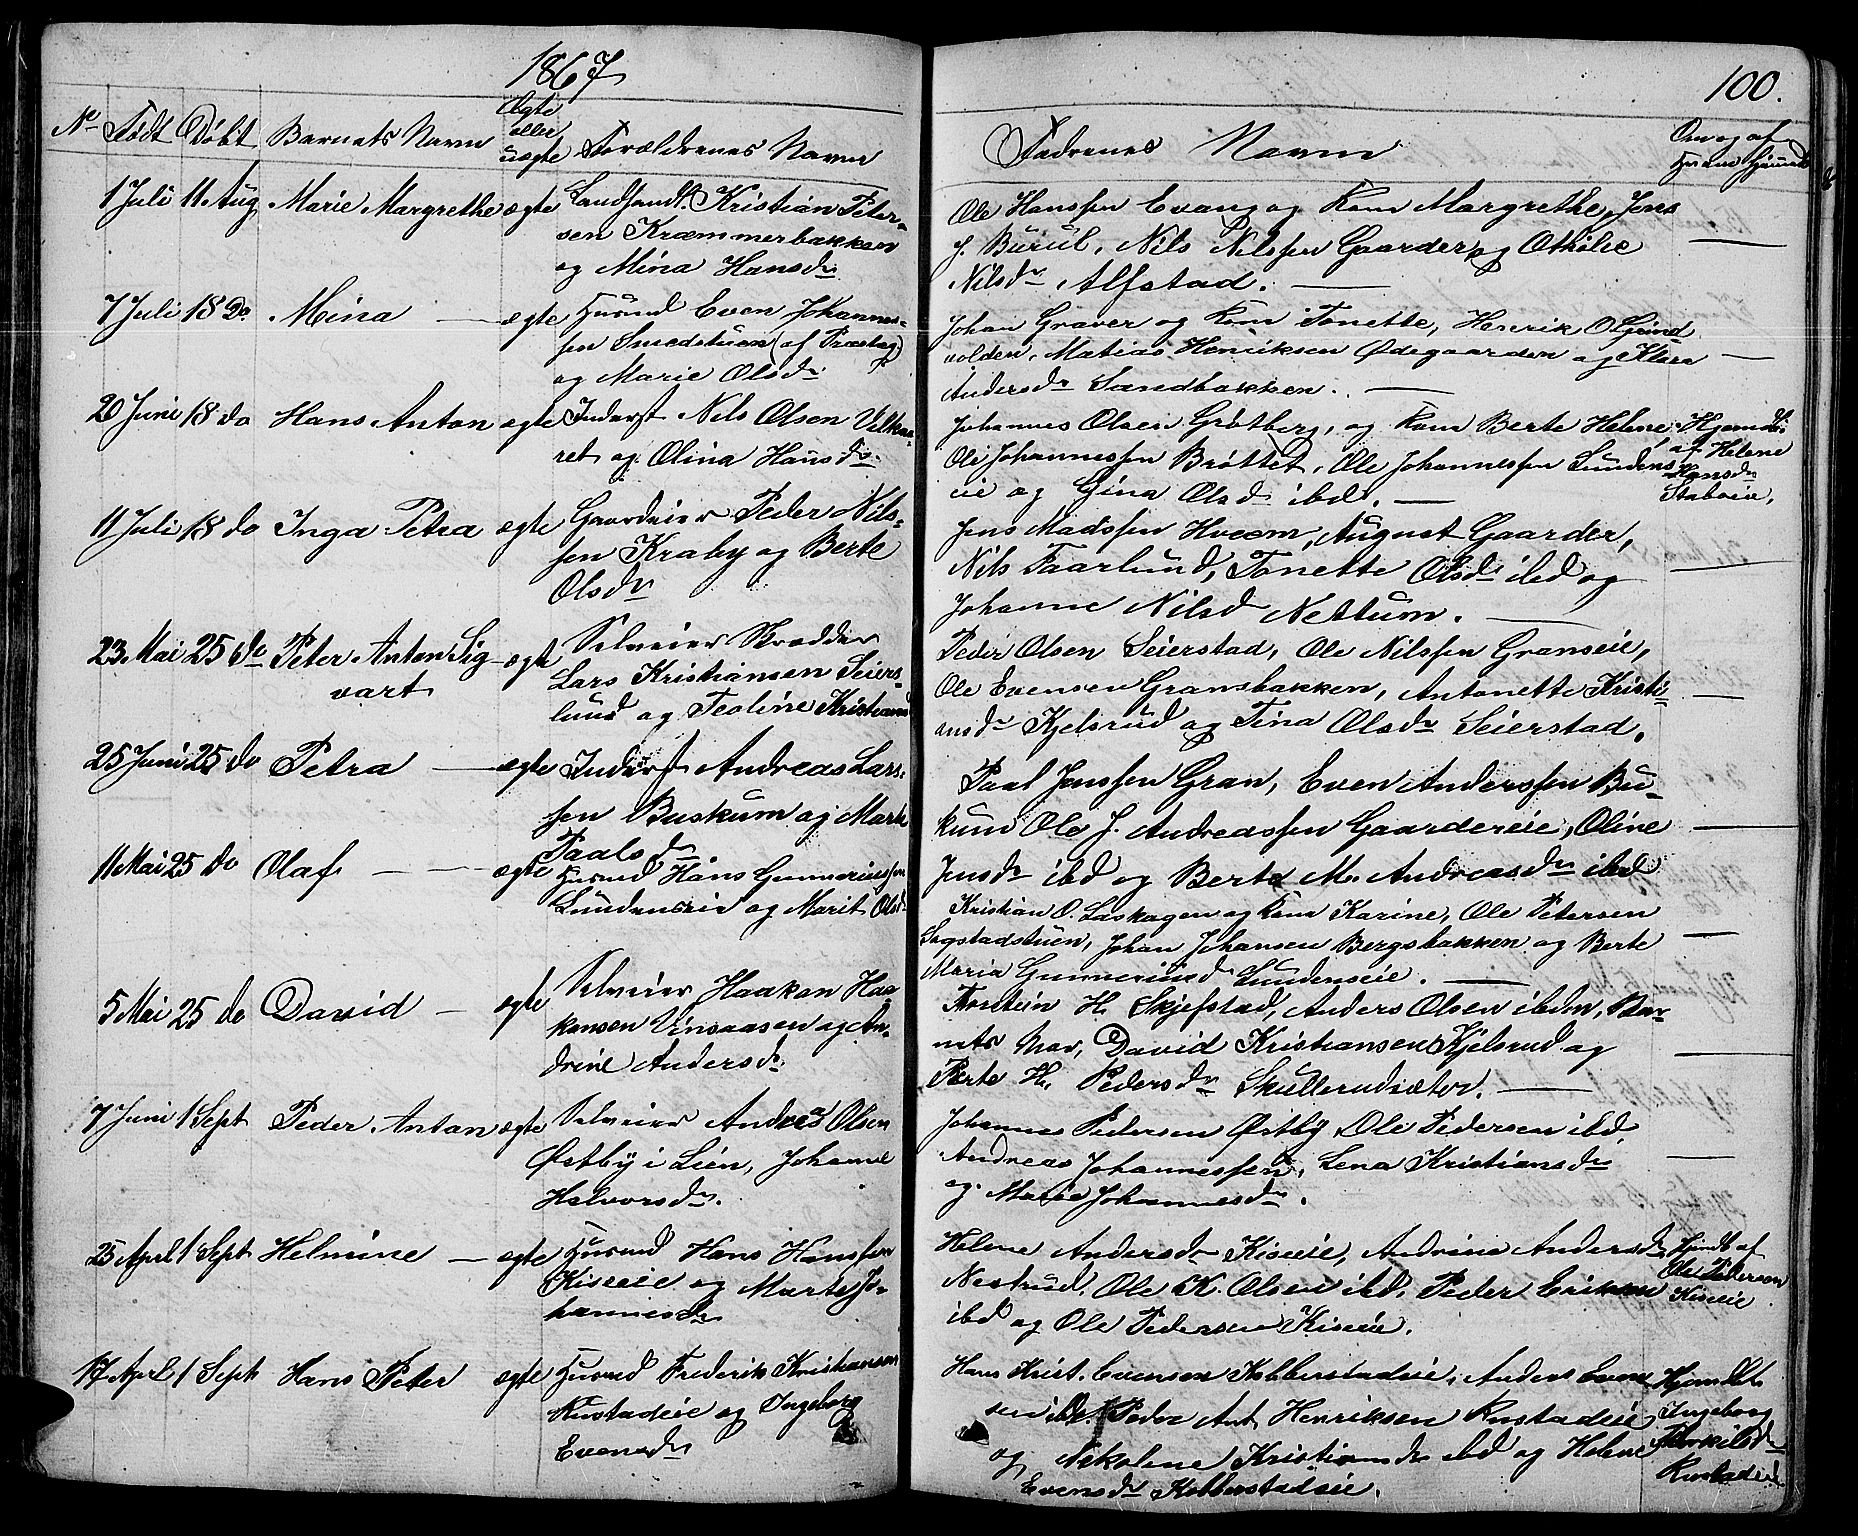 1867
100.
No Født Døbt Barnets Navn Ægte eller uægte Forældrenes Navne
Faddrenes Navne
Om og af hvem hjemdøbt
1 Juli 11 Aug Marie Margrethe ægte Landhandl. Kristian Peter-
sen Kræmmerbakken
og Mina Hansdr
Ole Hanssen Evang og Kone Margrethe, Jens
J. Burul, Nils Nilssen Gaarder og Othilie
Nilsdr Alfstad.
7 Juli 18 Do Mina ægte Husmd Even Johannes-
sen Smedstuen (af Præsteg.)
og Marie Olsdr
Johan Graver og Kone Tonette, Henrik O. Grind-
volden, Matias Henriksen Ødegaarden og Klara
Andersdr Sandbakken.
20 Juni 18 do Hans Anton ægte Inderst Nils Olsen Velkaa-
ret og Olina Hansdr.
Johannes Olsen Grøtberg, og Kone Berte Helene, Hjemdbt
Ole Johannessen Brøttet, Ole Johannessen Lundens- af Helene
eie og Gina Olsd ibd. Hansdr
Stabveie.
11 Juli 18 do Inga Petra ægte Gaardeier Peder Nils-
sen Kraby og Berte
Olsdr
Jens Madssen Hveem, August Gaarder,
Nils Faarlund, Tonette Olsdr ibd og
Johanne Nilsd Nettum.
23 Mai 25 do Peter Anton Sig- ægte Selveier Skrædder
vart Lars Kristiansen Seiers-
lund og Teoline Kristiansd
Peder Olsen Seierstad, Ole Nilssen Granseie,
Ole Evensen Gransbakken, Antonette Kristi-
ansdr Kjelsrud og Tina Olsdr Seierstad.
25 Juni 25 do Petra ægte Inderst Andreas Lars-
sen Buskum og Marte
Paalsdr
Paal Jenssen Gran, Even Anderssen Bu-
kum Ole J. Andreassen Gaardereie, Oline
Jensdr ibd og Berte M. Andreasdr ibd
11 Mai 25 do Olaf ægte Husmd Hans Gunneriussen
Lundenseie og Marit Olsdr
Kristian O. Laskagen og Kone Karine, Ole Petersen
Sagstadstuen, Johan Johansen Bergsbakken og Berte
Maria Gunneriusd Lundenseie.
5 Mai 25 do David ægte Selveier Haakon Haa-
konsen Vinsaasen og An-
drine Andersdr
Torstein H. Skjefstad, Anders Olsen ibdm, Bar-
nets Mor, David Kristiansen Kjelsrud og
Berte H. Pedersdr Skullerudsæter.
7 Juni 1 Sept Peder Anton ægte Selveier Andreas Olsen
Østby i Lien, Johanne
Halvorsdr.
Johannes Pedersen Østby Ole Pedersen ibd,
Andreas Johannessen, Lena Kristiansdr
og Marie Johannesdr.
25 April 1 Sept Helmine ægte Husmd Hans Hanssen
Kiseeie og Marte Jo-
hannesdr
Helene Andersdr Kiseeie, Andrine Andersdr Hjmdt af
Nestrud, Ole K. Olsen ibd, Peder Eriksen Ole Pedersen
ibd og Ole Pedersen Kiseeie. Kiseeie
17 April 1 Sept Hans Peter ægte Husmd Frederik Kristiansen
Rustadeie og Ingeborg
Evensdr
Hans Krist. Evensen Kobberstadeie, Anders Even- Hjemdbt
sen ibd, Peder Ant. Henriksen Rustadeie Ingeborg
og Nikoline Kristiansdr ibd og Helene Thorkilsd
Evensdr Kobberstadeie. Rustadeie